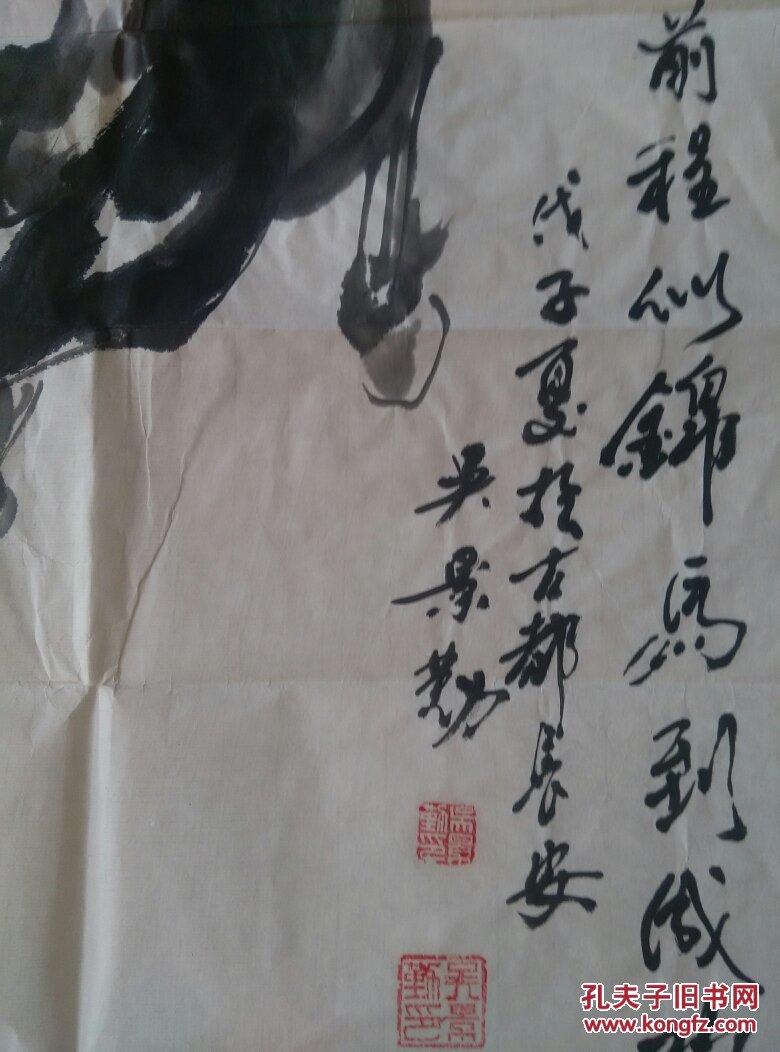 前程似錦馬到成
戊子夏於古都長安
吳景勤
吳景勤印
吳景勤印
孔夫子旧书网
www.kongfz.com